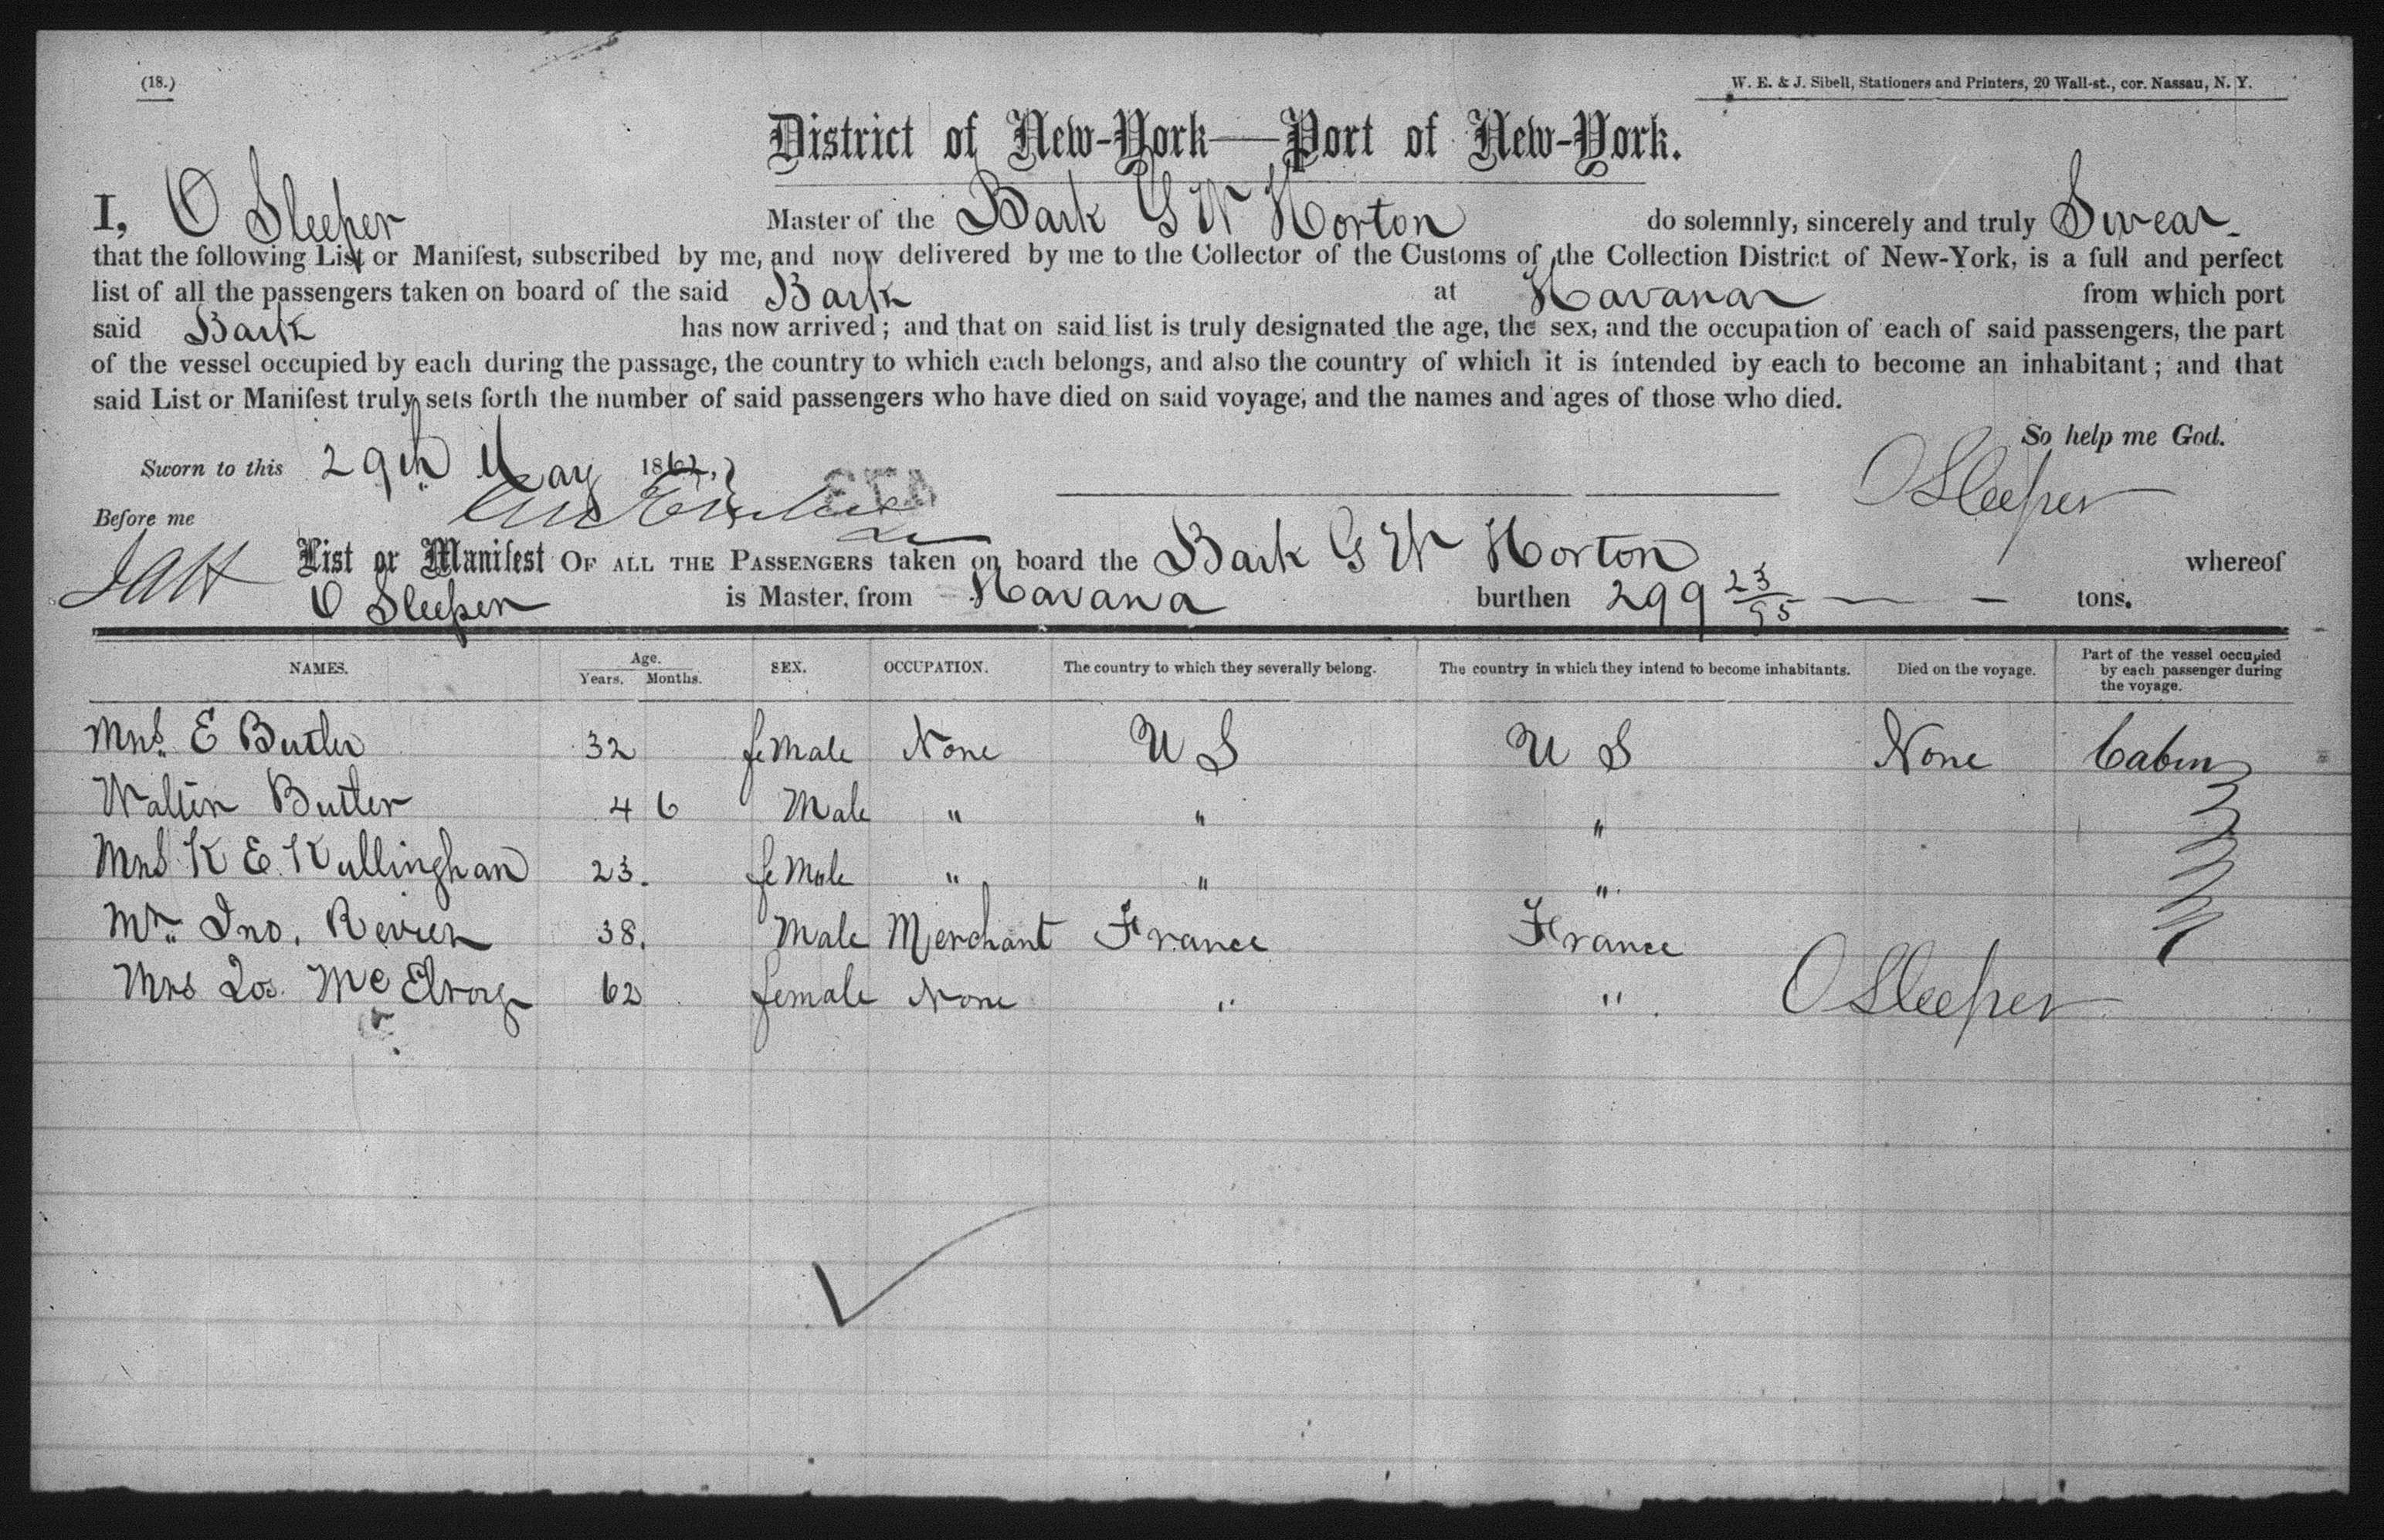 (18.)
W. E. & J. Sibell, Stationers and Printers, 20 Wall-st., cor. Nassau, N. Y.
District of New-York—Port of New-York.
I, O Sleeper Master of the Bark G W Horton do solemnly, sincerely and truly Swear
that the following List or Manifest, subscribed by me, and now delivered by me to the Collector of the Customs of the Collection District of New-York, is a full and perfect
list of all the passengers taken on board of the said Bark at Havana from which port
said Bark has now arrived; and that on said list is truly designated the age, the sex, and the occupation of each of said passengers, the part
of the vessel occupied by each during the passage, the country to which each belongs, and also the country of which it is intended by each to become an inhabitant; and that
said List or Manifest truly sets forth the number of said passengers who have died on said voyage, and the names and ages of those who died.
So help me God.
Sworn to this 29th May 1862, O Sleeper
Before me
List or Manifest OF ALL THE PASSENGERS taken on board the Bark G W Horton whereof
O Sleeper is Master, from Havana burthen 299 23/95 tons.
NAMES. Age. Years. Months. SEX. OCCUPATION. The country to which they severally belong. The country in which they intend to become inhabitants. Died on the voyage. Part of the vessel occupied by each passenger during the voyage.
Mrs. E Butler 32 female None U S U S None Cabin
Walter Butler 4 6 Male " " "
Mrs K E Kullinghan 23. female " " "
Mr. Jno. 38. Male Merchant France France
Mrs Jos. McElroy 62 female None " " O Sleeper